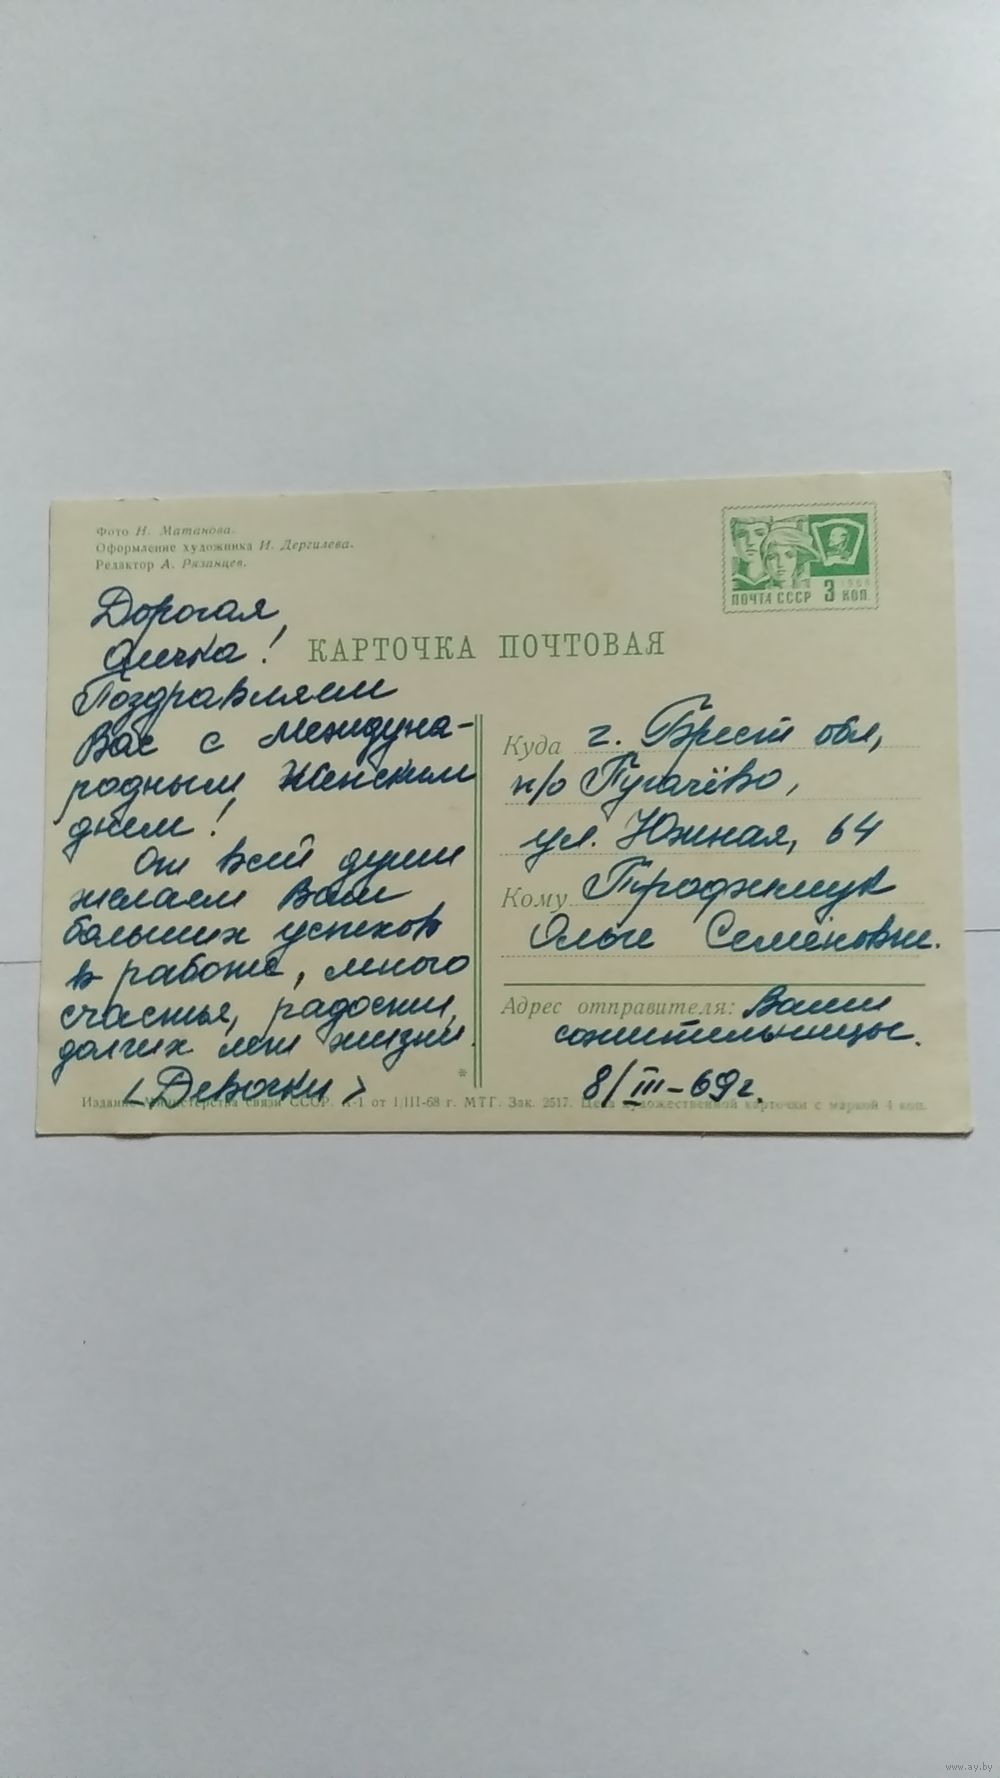 Фото Н. Матанова.
Оформление художника И. Дергилева.
Редактор А. Рязанцев.
ПОЧТА СССР 3 КОП.
1966
КАРТОЧКА ПОЧТОВАЯ
Дорогая
Олечка!
Поздравляем
Вас с Междуна-
родным Женским
днем!
От всей души
желаем Вам
больших успехов
в работе, много
счастья, радости,
долгих лет жизни.
(Девочки)
Куда г. Брест обл,
п/о Пугачёво,
ул. Южная, 64
Кому
Ольге Семёновне.
Адрес отправителя: Ваши
сожительницы.
8/III-69г.
Издание Министерства связи СССР. А-1 от 1/III-68 г. МТГ. Зак. 2517. Цена художественной карточки с маркой 4 коп.
www.ay.by